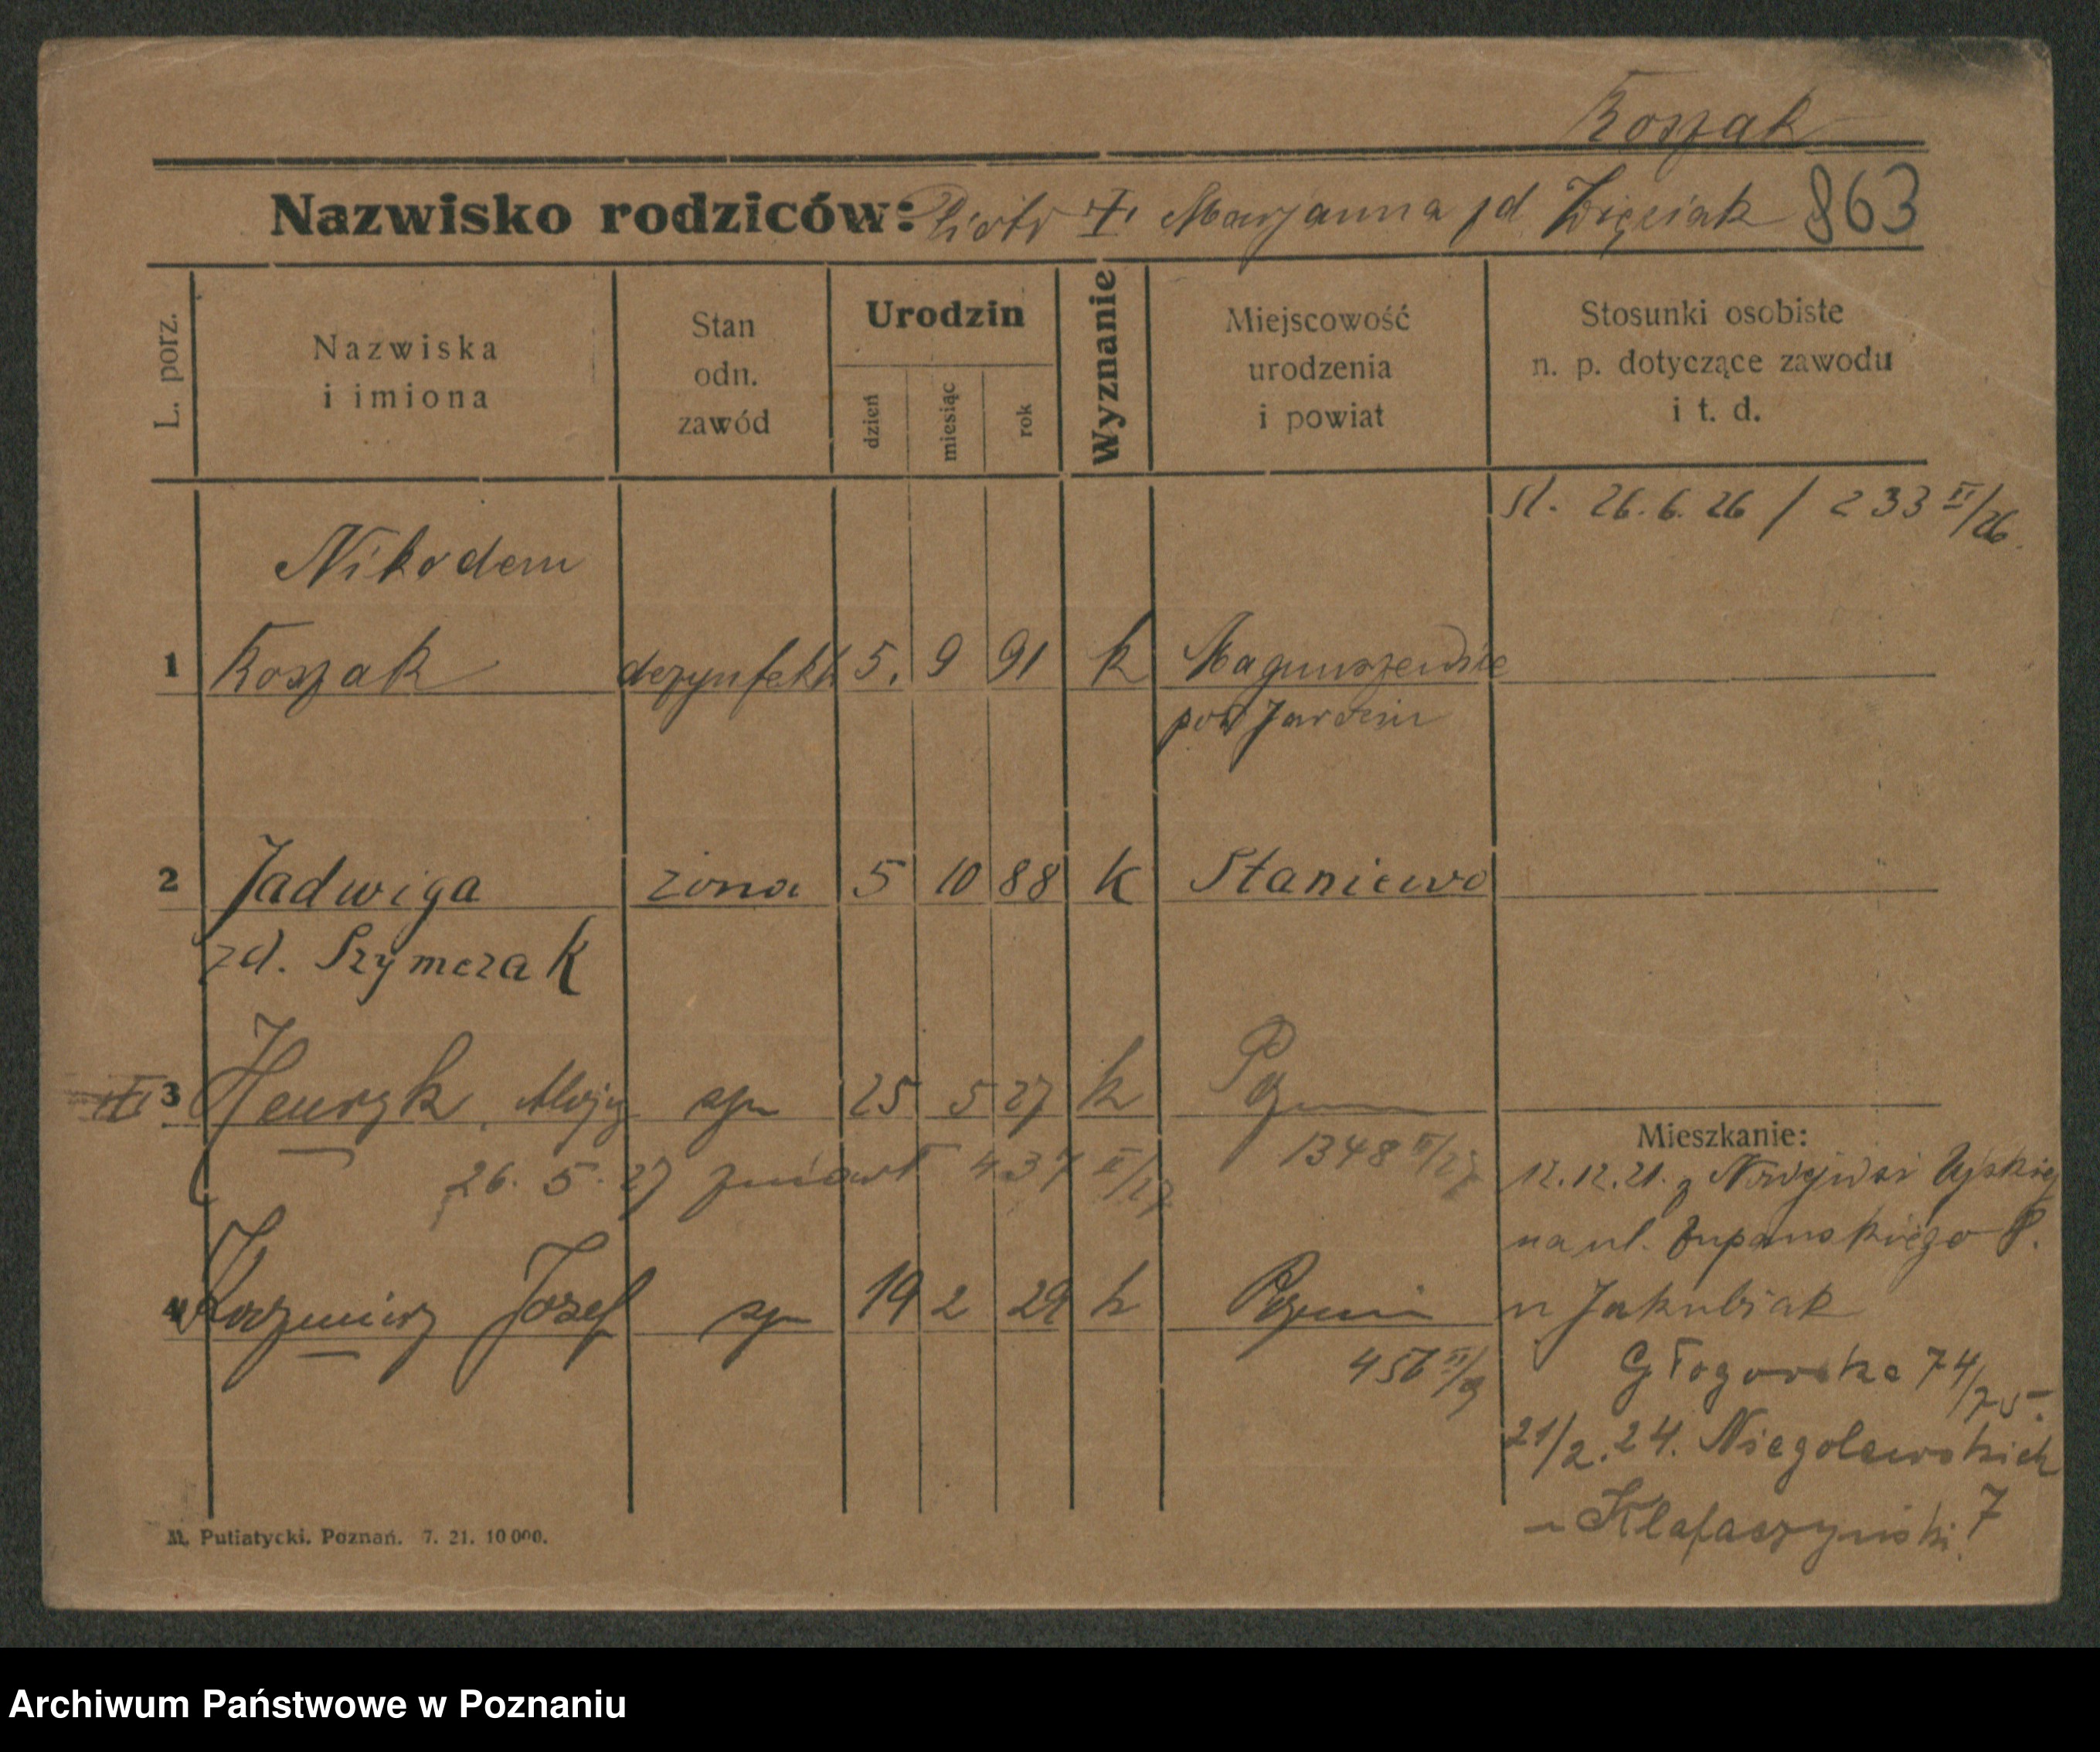 Koszak
Nazwisko rodziców: Piotr Marjanna zd Zięciak 863
L. porz.
Nazwiska
i imiona
Stan
odn.
zawód
Urodzin
dzień
miesiąc
rok
Wyznanie
Miejscowość
urodzenia
i powiat
Stosunki osobiste
n. p. dotyczące zawodu
i t. d.
sl. 26.6.26 / 233 II/26.
Nikodem
1 Koszak dezynfekt 5. 9 91 k Magnuszewice
pow Jarocin
2 Jadwiga żona 5 10 88 K Staniewo
zd. Szymczak
3 Henryk, Alojzy syn 25 5 27 k Pozn
1348 II/27
26. 5. 27 zmarł 437 II/27
4 Kazimierz Józef syn 19 2 29 k Poznań
456 II/9
Mieszkanie:
12.12.21. z Nowejwsi Ujskiej
na ul. Żupańskiego 8.
u Jakubiak
Głogowska 74/75.
21/2. 24. Niegolewskich 7
u Klafaszyński.
M. Putiatycki. Poznań. 7. 21. 10 000.
Archiwum Państwowe w Poznaniu